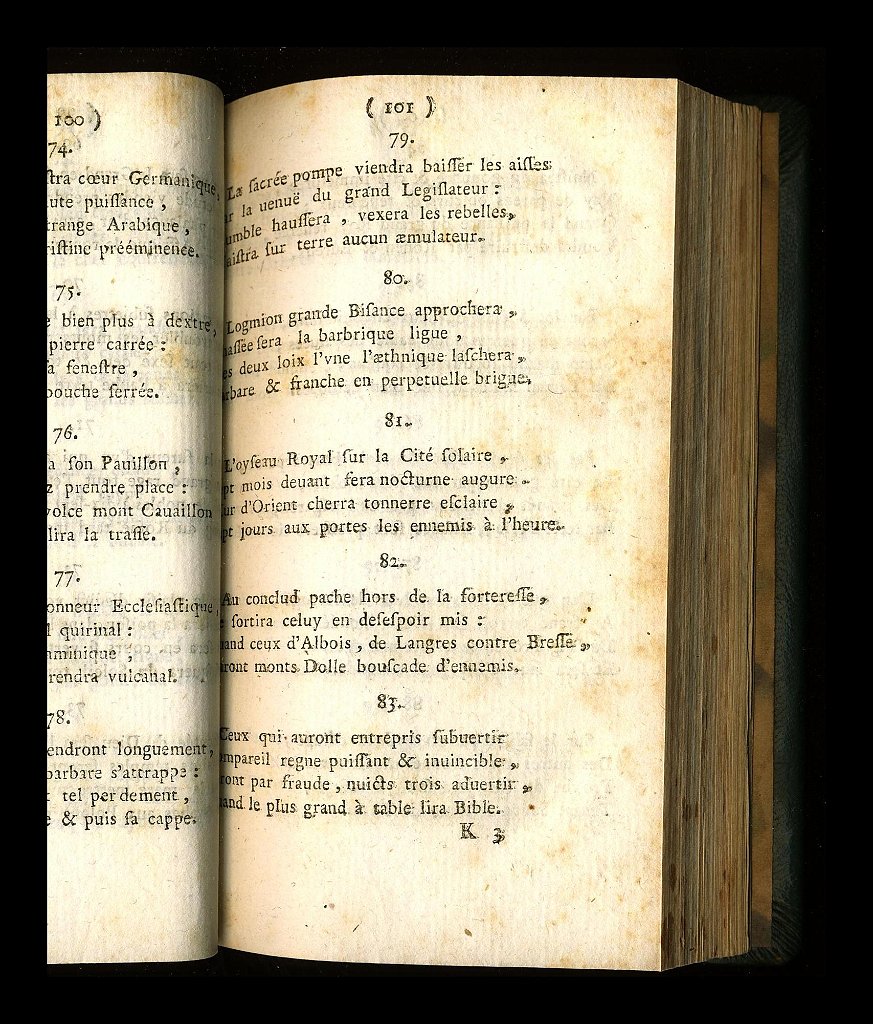 100 )
74.
stra cœur Germanique,
ute puissance ,
trange Arabique ,
ristine prééminence.
75.
e bien plus à dextre,
pierre carrée :
a fenestre ,
bouche serrée.
76.
a son Pauillon ,
z prendre place :
volce mont Cauaillon
lira la trasse.
77.
onneur Ecclesiastique
l quirinal :
mminique ,
rendra vulcanal.
78.
endront longuement,
barbare s'attrappe :
t tel perdement ,
e & puis sa cappe.
( 101 )
79.
La sacrée pompe viendra baisser les aisles
r la uenuë du grand Legislateur :
umble haussera , vexera les rebelles,
aistra sur terre aucun æmulateur.
80.
Logmion grande Bisance approchera ,
hassée sera la barbrique ligue ,
es deux loix l'vne l'æthnique laschera ,
rbare & franche en perpetuelle brigue.
81.
L'oyseau Royal sur la Cité solaire ,
pt mois deuant sera nocturne augure :
ur d'Orient cherra tonnerre esclaire ,
pt jours aux portes les ennemis à l'heure.
82.
Au conclud pache hors de la forteresse ,
e sortira celuy en desespoir mis :
uand ceux d'Albois , de Langres contre Bresse ,
ront monts Dolle bouscade d'ennemis.
83.
Ceux qui auront entrepris subuertir
ompareil regne puissant & inuincible ,
ront par fraude , nuicts trois aduertir ,
uand le plus grand à table lira Bible.
K 3